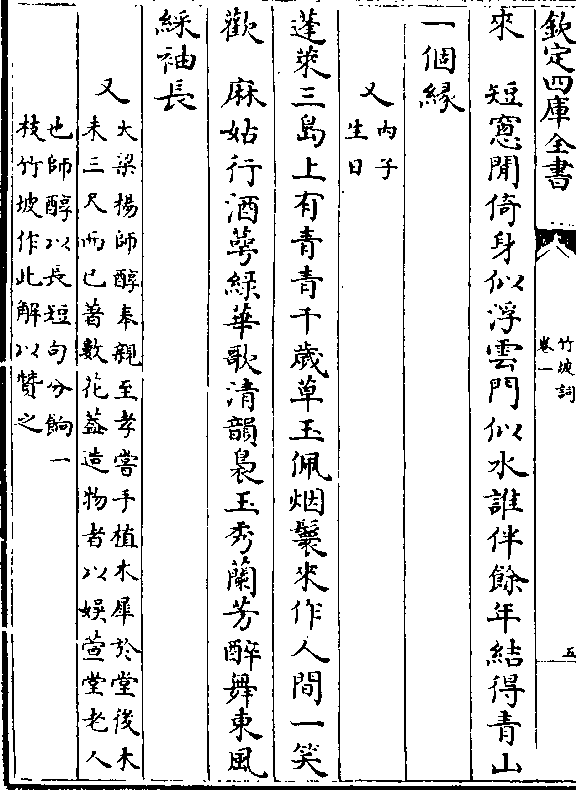 欽定四庫全書
竹坡詞
卷一
五
來　短窻閒倚身似浮雲門似水誰伴餘年結得青山
一個緣
又丙子
生日
蓬萊三島上有青青千歲草玉佩烟鬟來作人間一笑
歡　麻姑行酒萼緑華歌清韻裊玉秀蘭芳醉舞東風
綵袖長
又大梁楊師醇奉親至孝嘗手植木犀於堂後木
未三尺而已著數花葢造物者以娱萱堂老人
也師醇以長短句分餉一
枝竹坡作此解以贊之